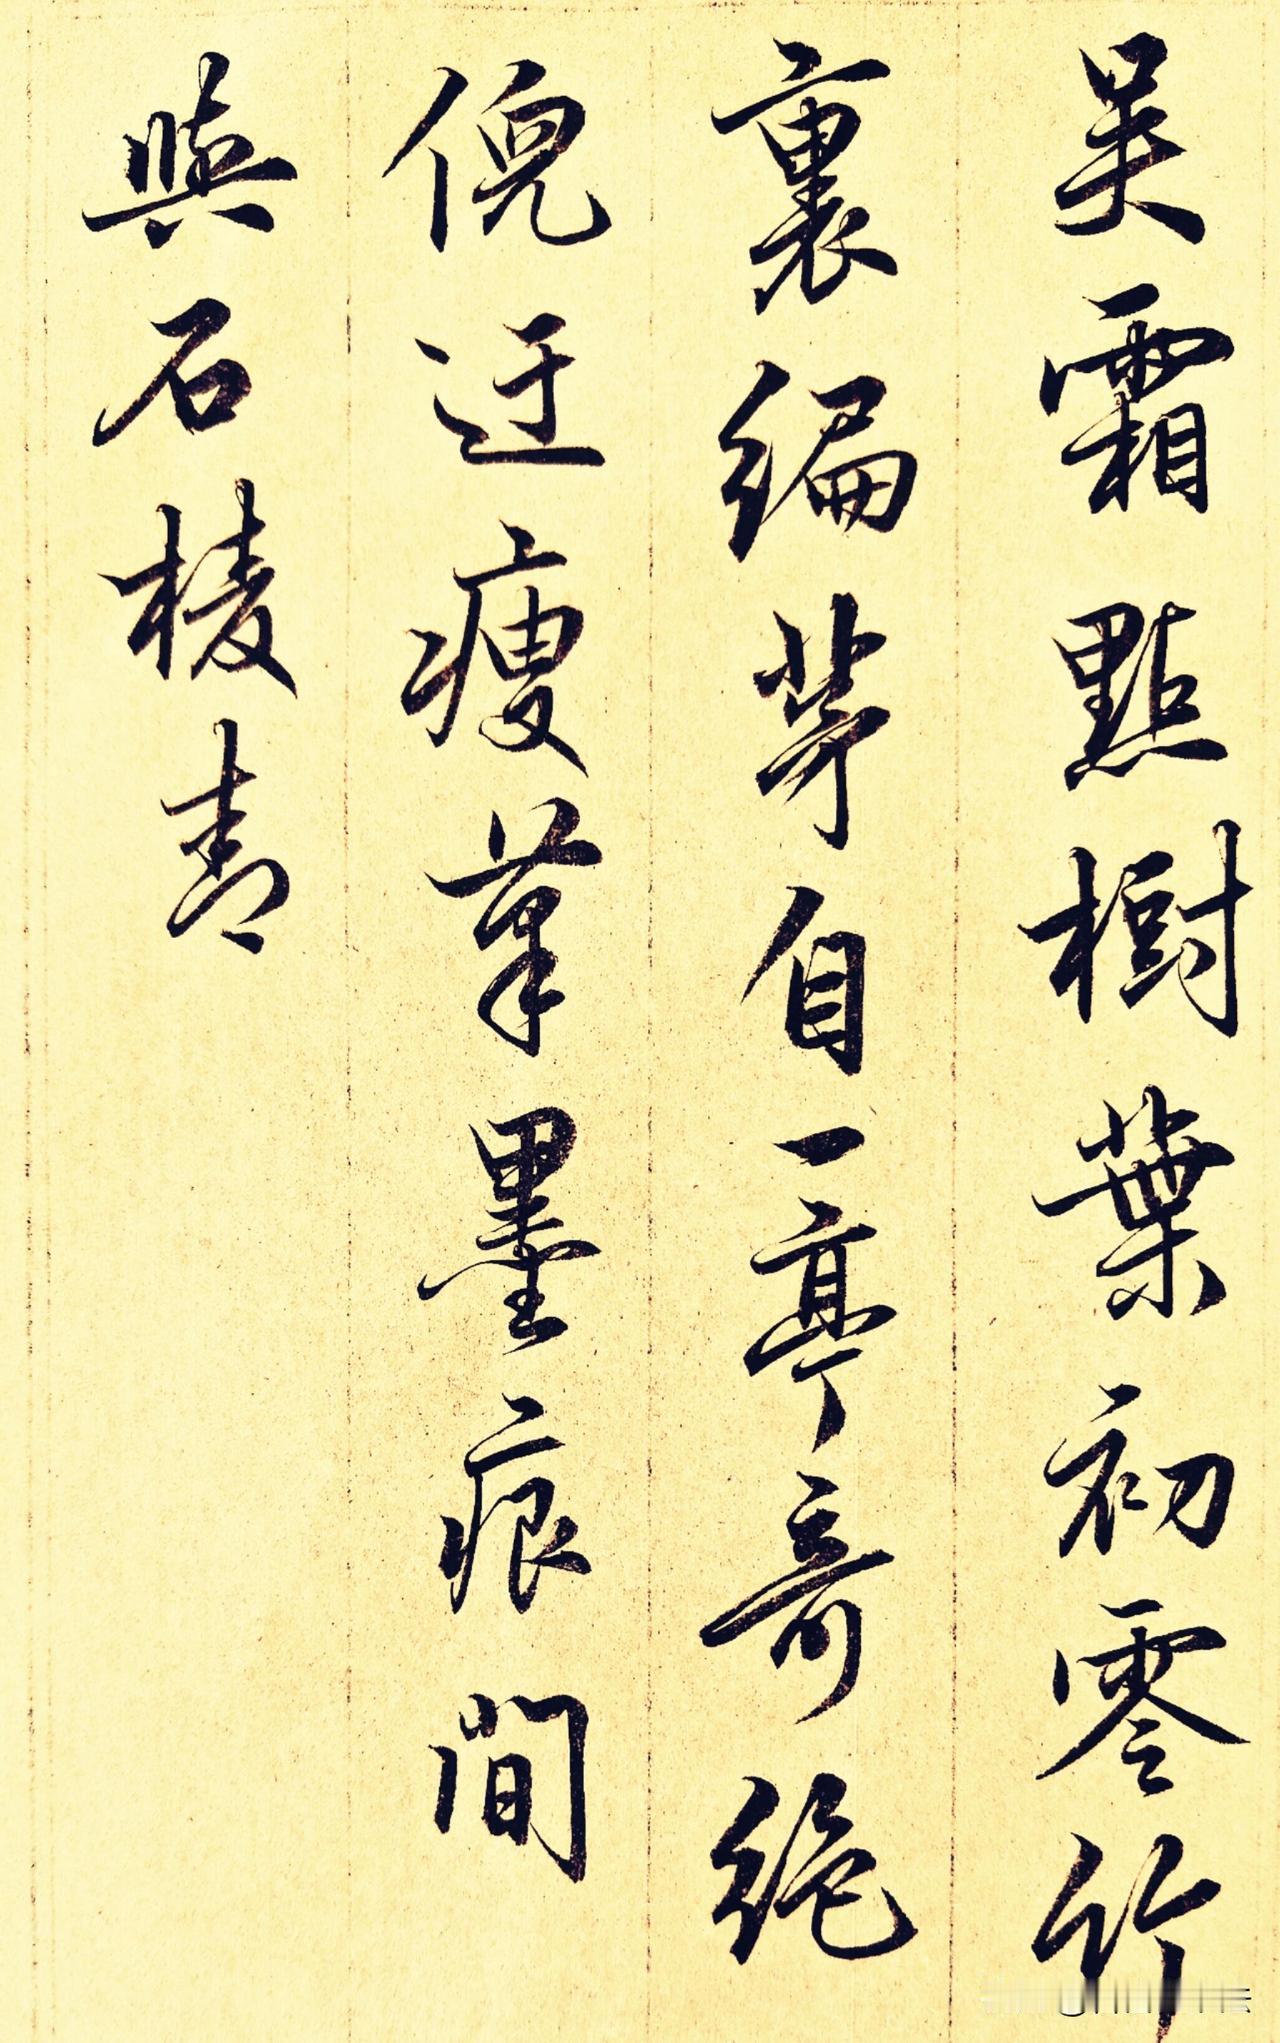 吴霜點樹葉初零竹
裏編茅自一亭奇絶
倪迂瘦筆墨痕間
與石棱青